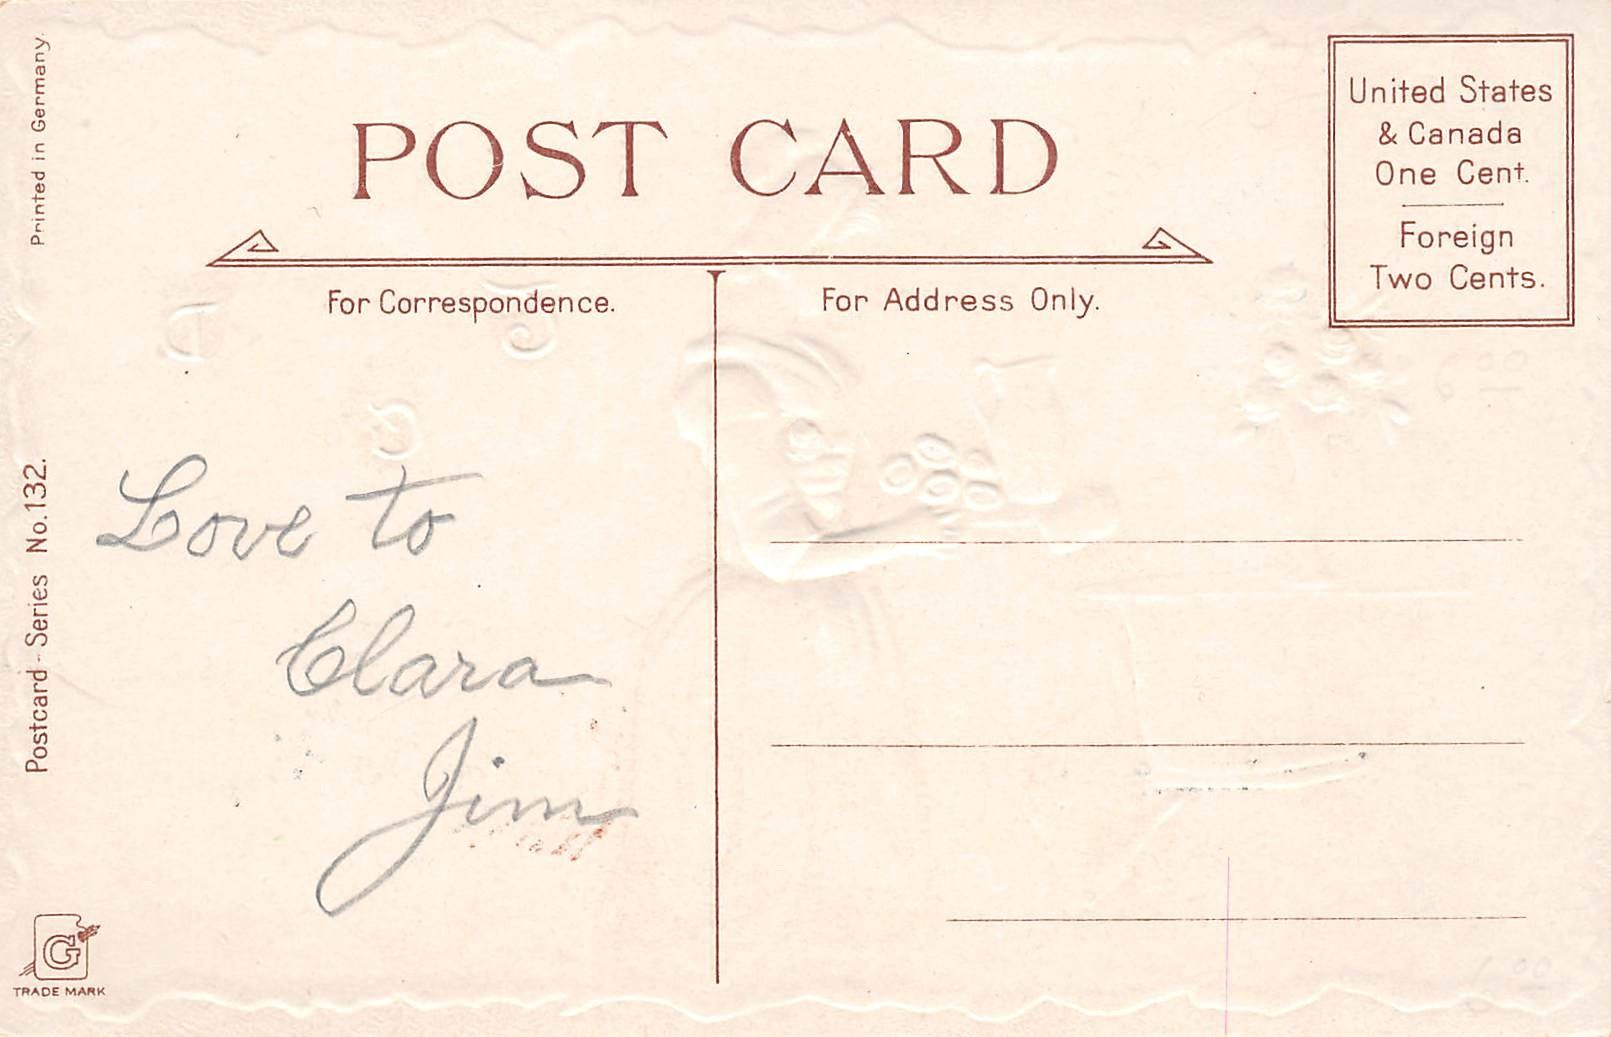 Printed in Germany.
POST CARD
United States
& Canada
One Cent.
Foreign
Two Cents.
For Correspondence.
For Address Only.
Postcard-Series No.132.
Love to
Clara
Jim
G
TRADE MARK